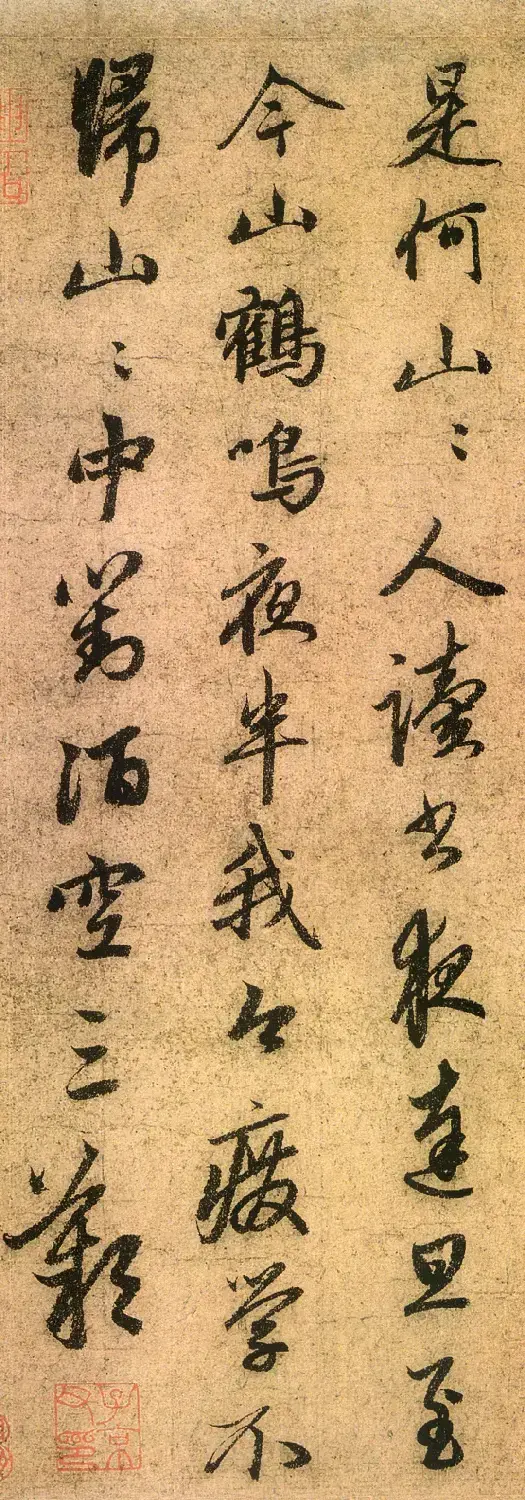 是何山〻人讀书夜達旦至
今山鶴鳴夜半我今廢学不
歸山〻中對酒空三歎